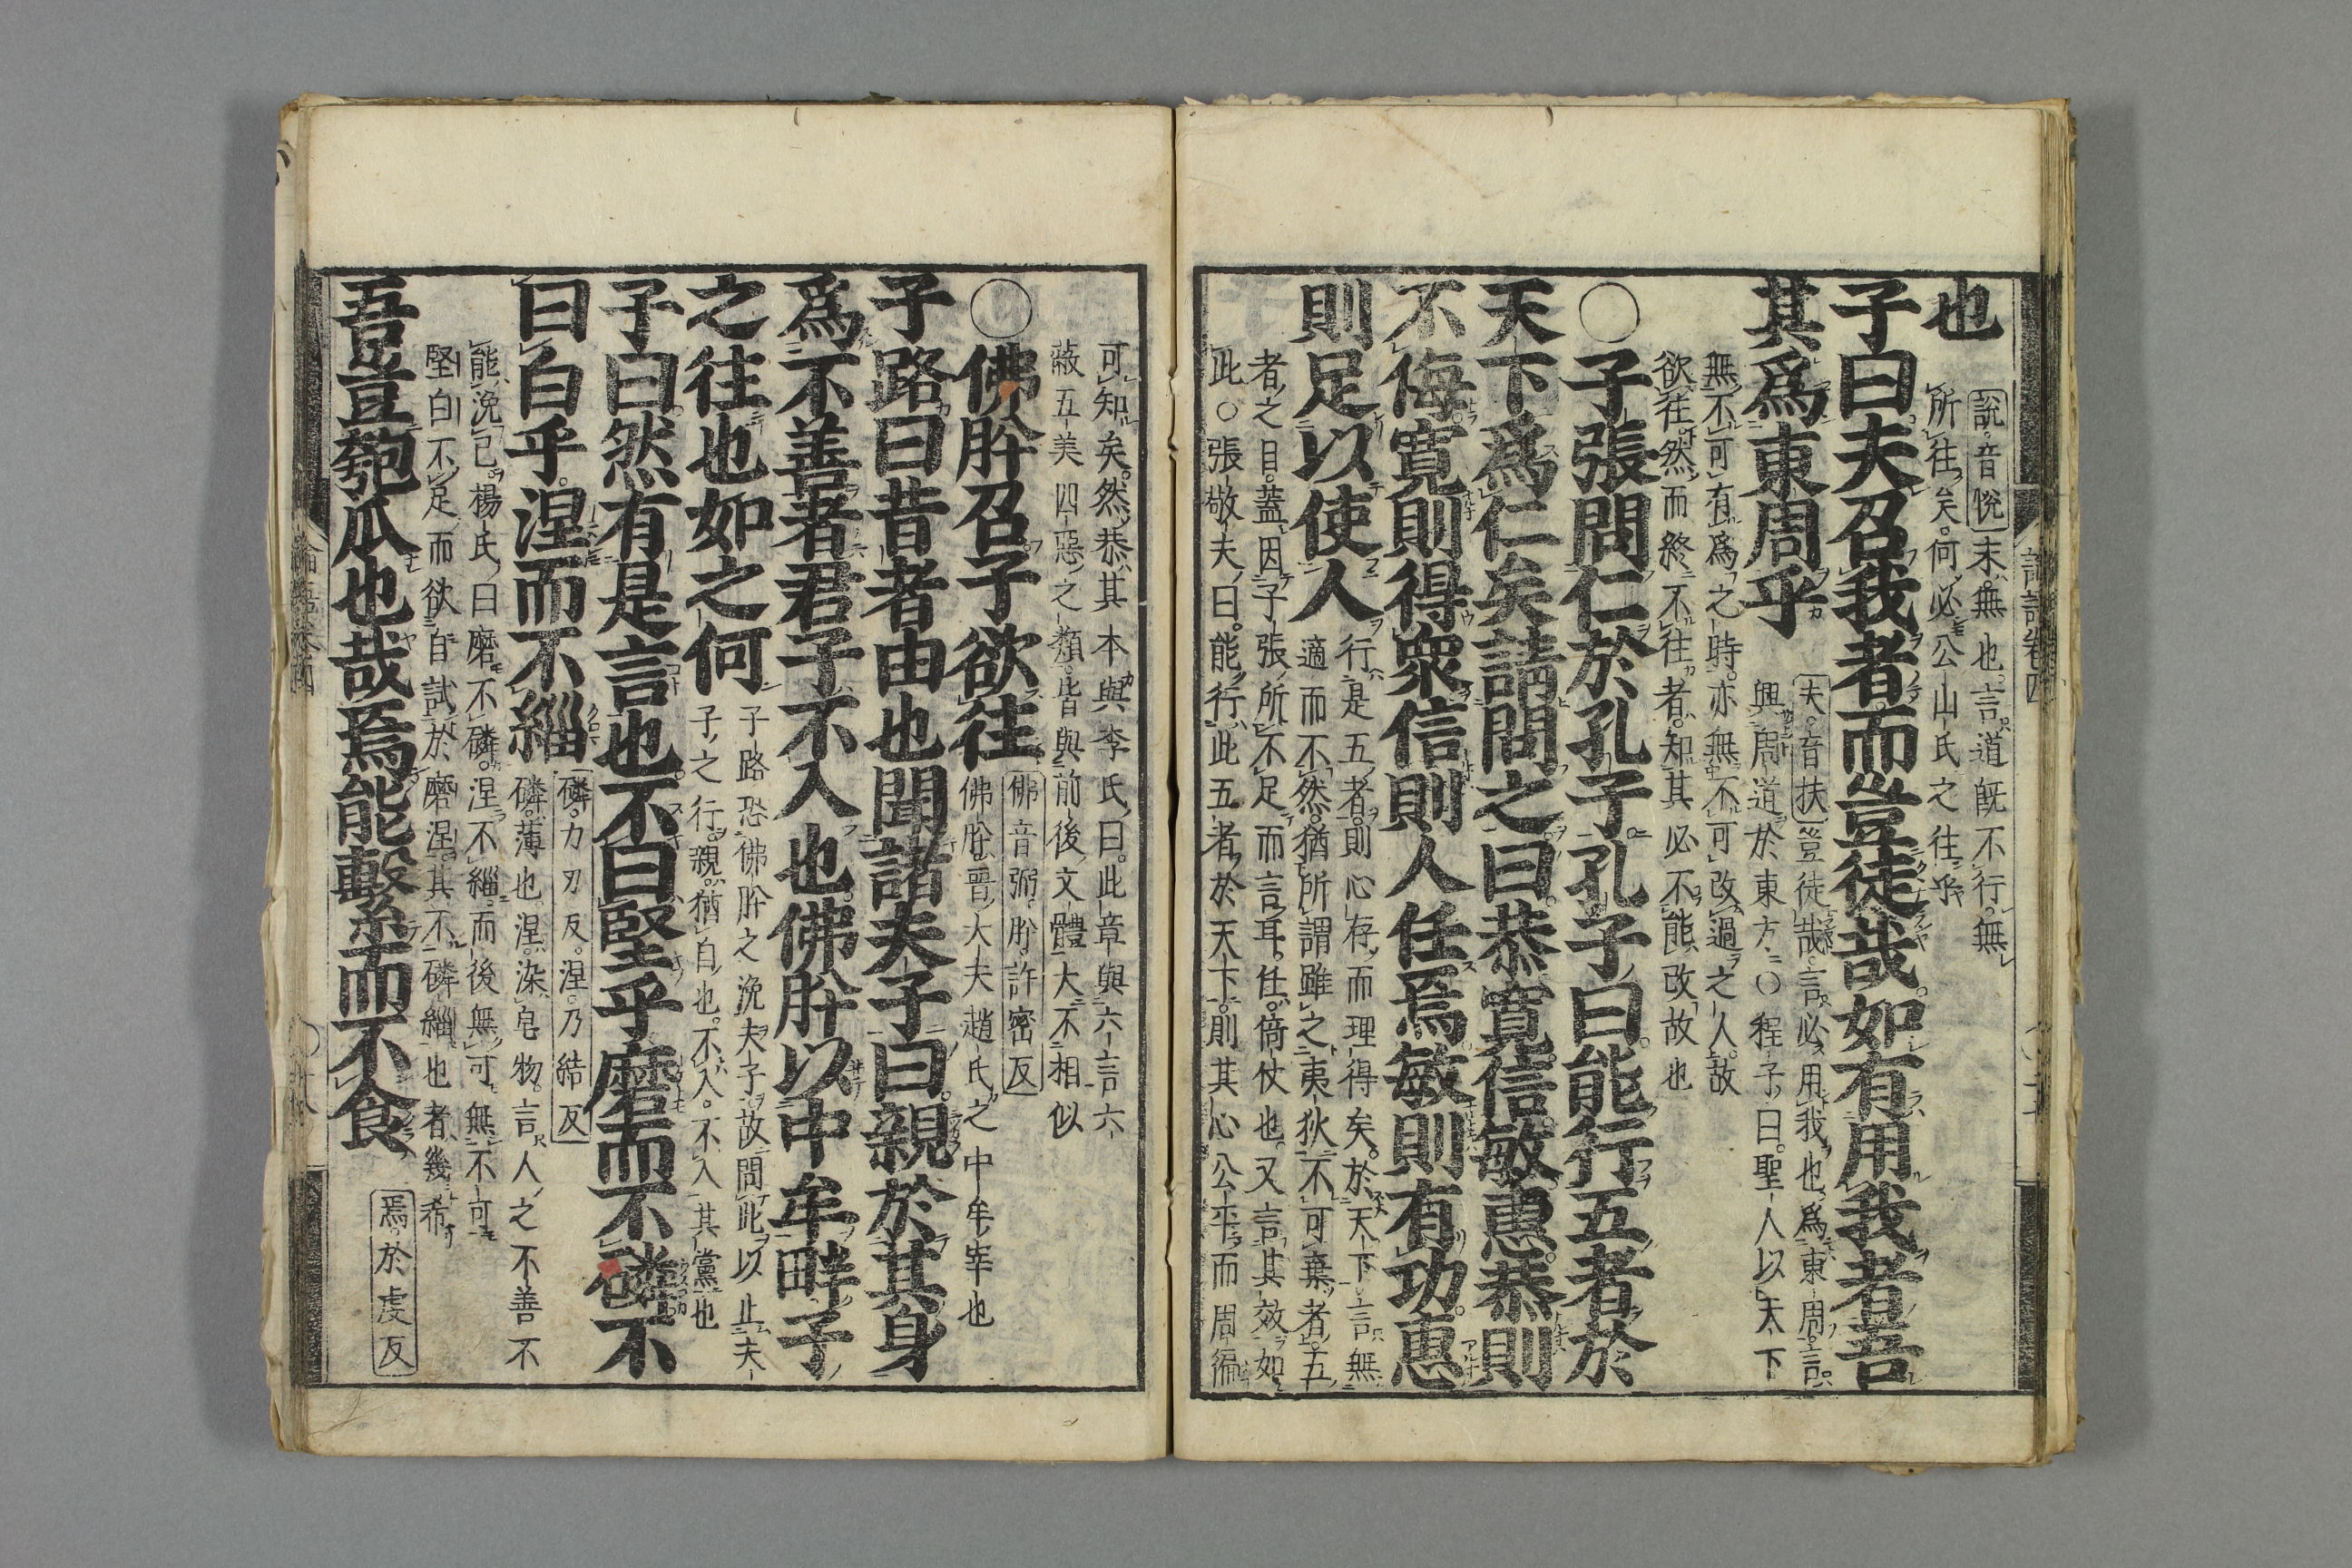 也
説音悅 末無也言道既不行無
所往矣何必公山氏之往乎
子曰夫召我者而豈徒哉如有用我者吾
其爲東周乎
夫音扶 豈徒哉言必用我也爲東周言
興周道於東方○程子曰聖人以天下
無不可有爲之時亦無不可改過之人故
欲往然而終不往者知其必不能改故也
○子張問仁於孔子孔子曰能行五者於
天下爲仁矣請問之曰恭寬信敏惠恭則
不侮寬則得衆信則人任焉敏則有功惠
則足以使人
行是五者則心存而理得矣於天下言無
適而不然猶所謂雖之夷狄不可棄者五
者之目蓋因子張所不足而言耳任倚仗也又言其效如
此○張敬夫曰能行此五者於天下則其心公平而周徧
可知矣然恭其本與李氏曰此章與六言六
蔽五美四惡之類皆與前後文體大不相似
○佛肸召子欲往
佛音弼肸許密反
佛肸晉大夫趙氏之中牟宰也
子路曰昔者由也聞諸夫子曰親於其身
爲不善者君子不入也佛肸以中牟畔子
之往也如之何
子路恐佛肸之浼夫子故問此以止夫
子之行親猶自也不入不入其黨也
子曰然有是言也不曰堅乎磨而不磷不
曰白乎涅而不緇
磷力刃反涅乃結反
磷薄也涅染皂物言人之不善不
能浼己楊氏曰磨不磷涅不緇而後無可無不可
堅白不足而欲自試於磨涅其不磷緇也者幾希
吾豈匏瓜也哉焉能繫而不食
焉於虔反